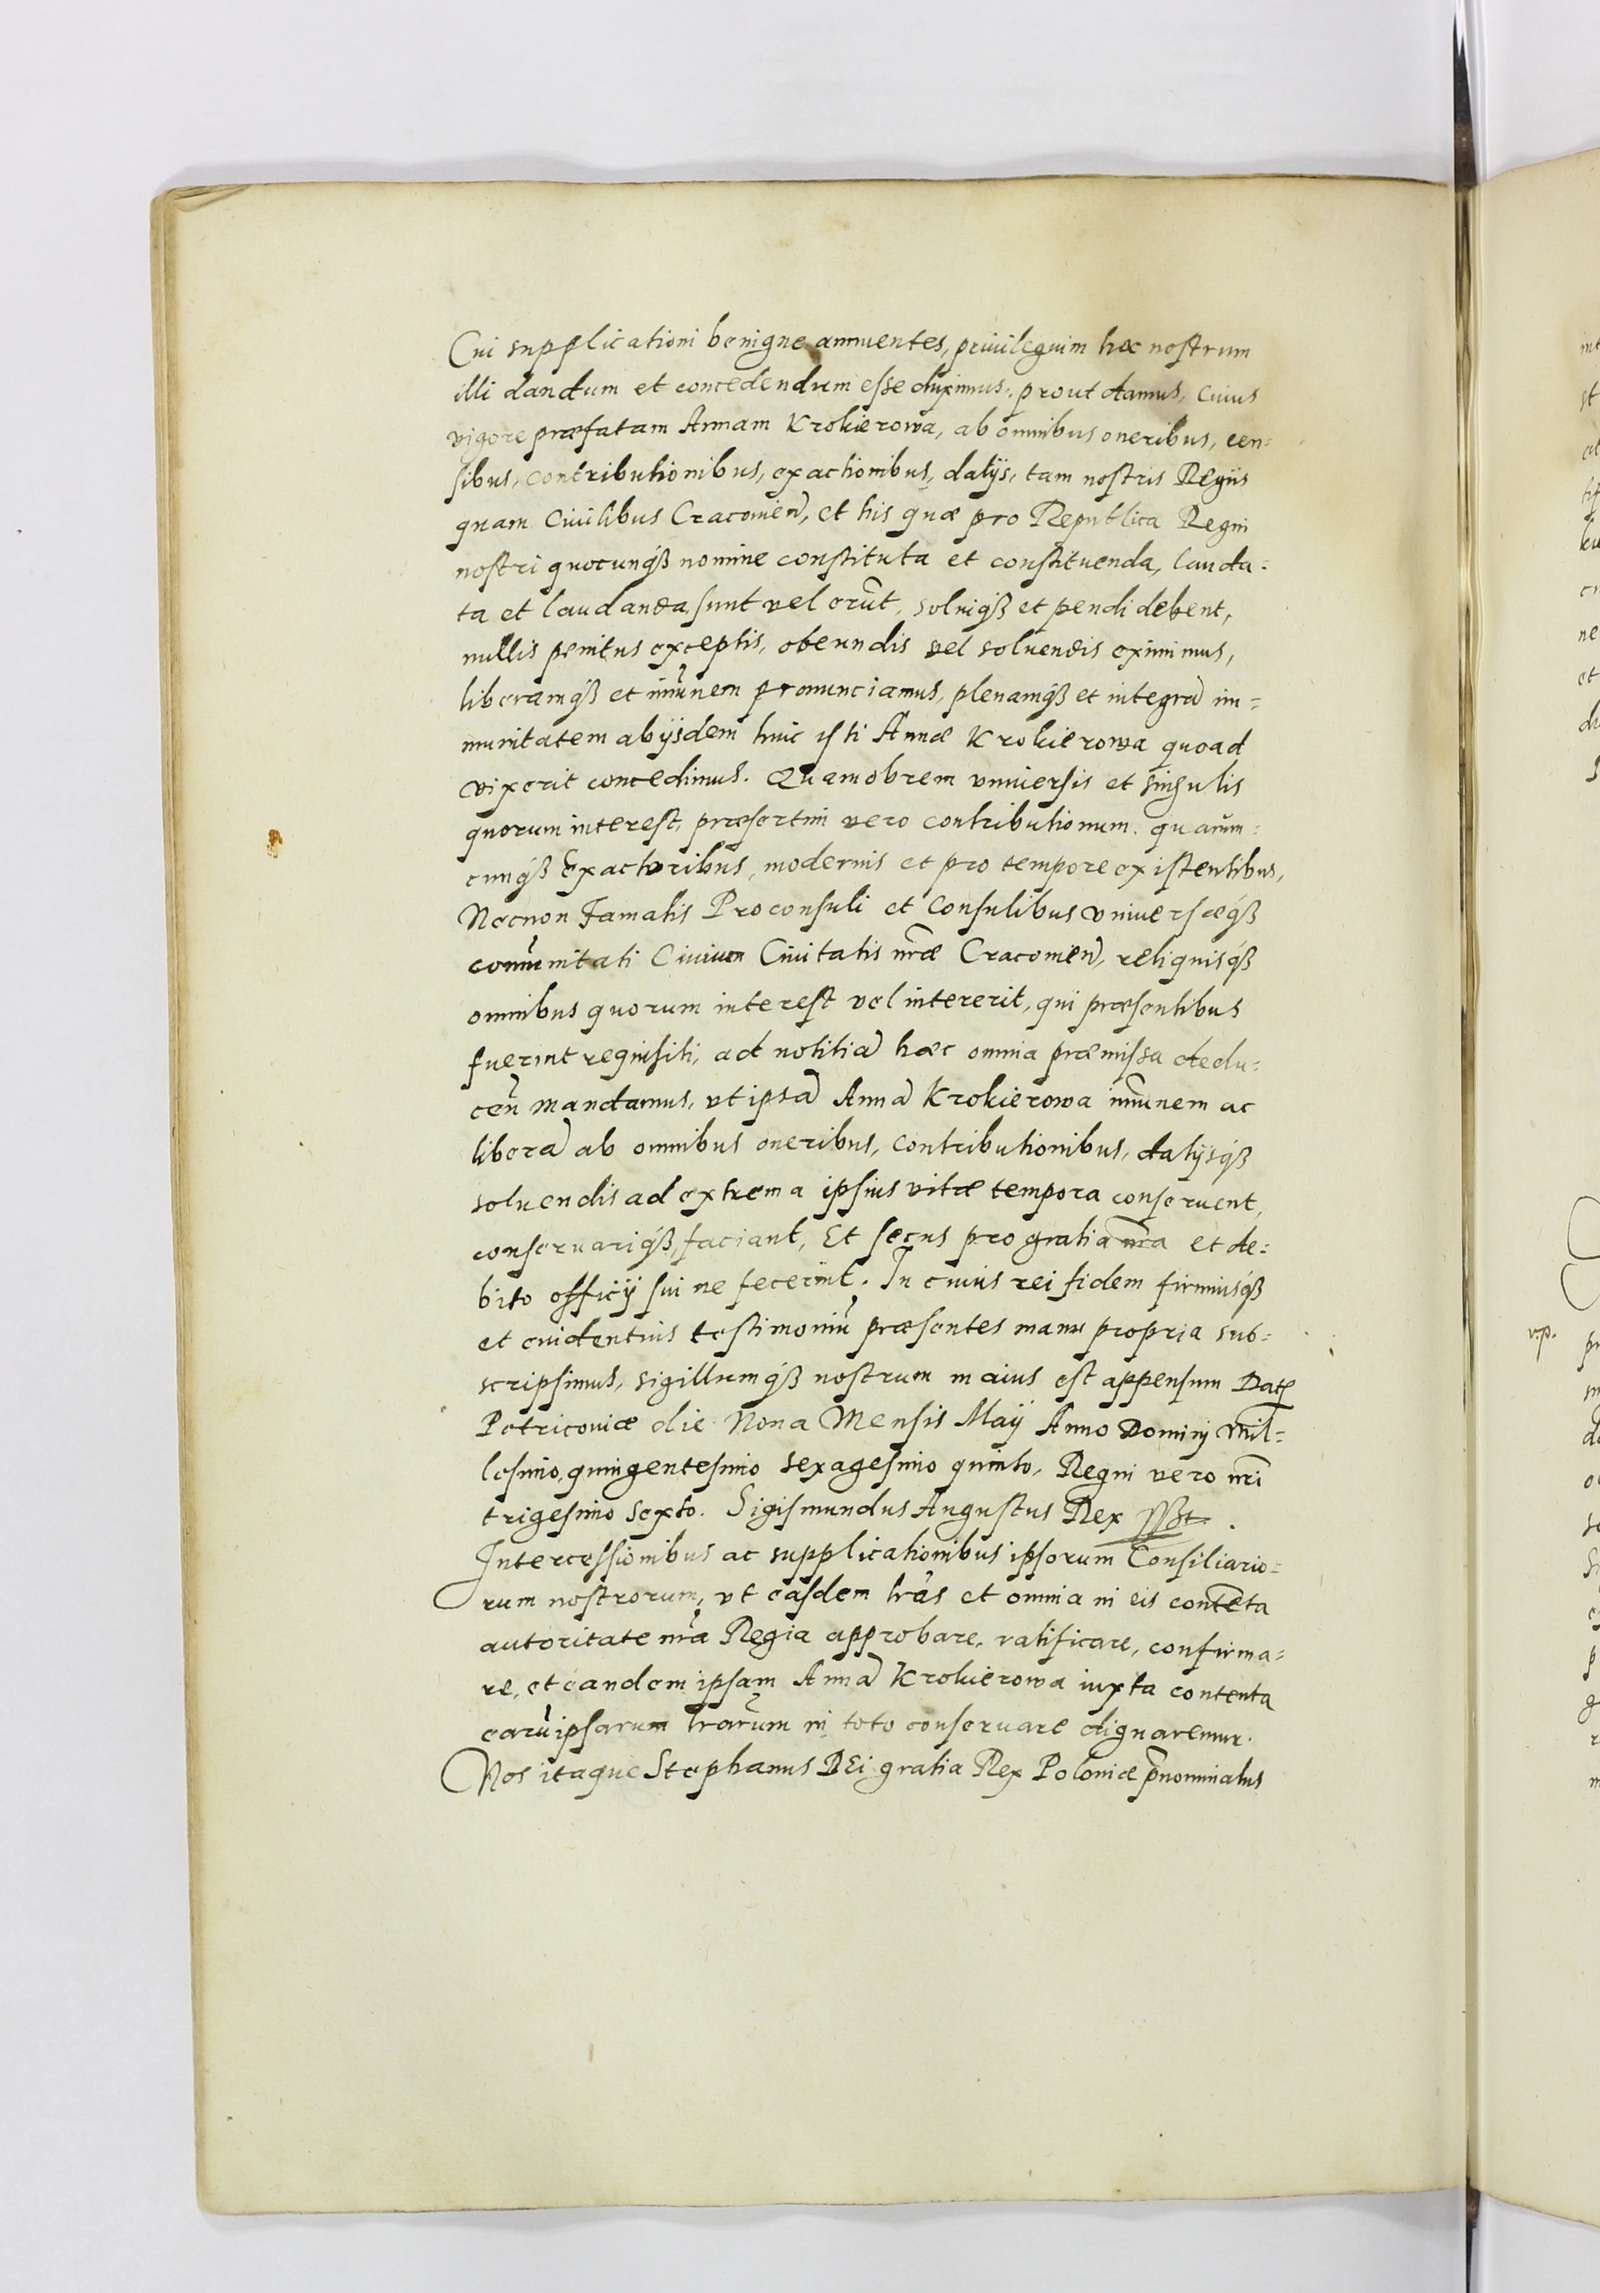 Cui supplicationi benigne annuentes, priuilegium hoc nostrum
illi dandum et concedendum esse duximus, prout damus, cuius
vigore præfatam Annam Krokierowa, ab omnibus oneribus, cen=
sibus, contributionibus, exactionibus, datijs, tam nostris Regiis
quam Ciuilibus Cracouien̄, et his quæ pro Republica Regni
nostri quocunqß nomine constituta et constituenda, lauda=
ta et laudanda sunt vel erūt, soluiqß et pendi debent,
nullis penitus exceptis, obeundis vel soluendis eximimus,
liberamqß et im̄unem pronunciamus, plenamqß et integrā im=
munitatem ab ijsdem huic isti Annæ Krokierowa quoad
vixerit concedimus. Quamobrem vniuersis et singulis
quorum interest, præsertim vero contributionum quarum=
cunqß Exactoribus, modernis et pro tempore existentibus,
Necnon Famatis Proconsuli et Consulibus vniuersæqß
com̄unitati Ciuium Ciuitatis nr̄æ Cracouien̄, reliquisqß
omnibus quorum interest vel intererit, qui præsentibus
fuerint requisiti, ad notitiā hæc omnia præmissa dedu=
cen̄ mandamus, vt ipsā Annā Krokierowa im̄unem ac
liberā ab omnibus oneribus, contributionibus, datijsqß
soluendis ad extrema ipsius vitæ tempora conseruent,
conseruariqß faciant, Et secus pro gratia nr̄a et de=
bito officij sui ne fecerint. In cuius rei fidem firmiusqß
et euidentius testimoniū præsentes manu propria sub=
scripsimus, sigillumqß nostrum maius est appensum Dat̄
Petricouiæ die Nona Mensis Maij Anno Domini Mil=
lesimo, quingentesimo sexagesimo quinto, Regni vero nr̄i
trigesimo sexto. Sigismundus Augustus Rex sst.
Intercessionibus ac supplicationibus ipsorum Consiliario=
rum nostrorum, vt easdem lr̄as et omnia in eis contenta
autoritate nr̄a Regia approbare, ratificare, confirma=
re, et eandem ipsam Annā Krokierowa iuxta contenta
earū ipsarum lr̄arum in toto conseruare dignaremur.
Nos itaque Stephanus DEi gratia Rex Poloniæ p̄nominatus
v.p.